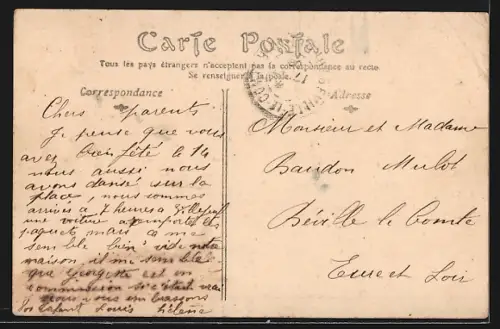 Carte Postale
Tous les pays étrangers n'acceptent pas la correspondance au recto
Se renseigner à la poste.
Correspondance
Adresse
Chers parents
Je pense que vous
avez bien fêté le 14
nous aussi nous
avons dansé sur la
place, nous sommes
arrivés a 7 heures a
une voiture a emporté les
paquets mais a me
semble bien vide notre
maison, il me semble
que Georgette est en
commission si c'était vrai
nous vous embrassons
vos enfant Louis Hélène
Monsieur et Madame
Baudon Mulot
Béville le Comte
Eure et Loir